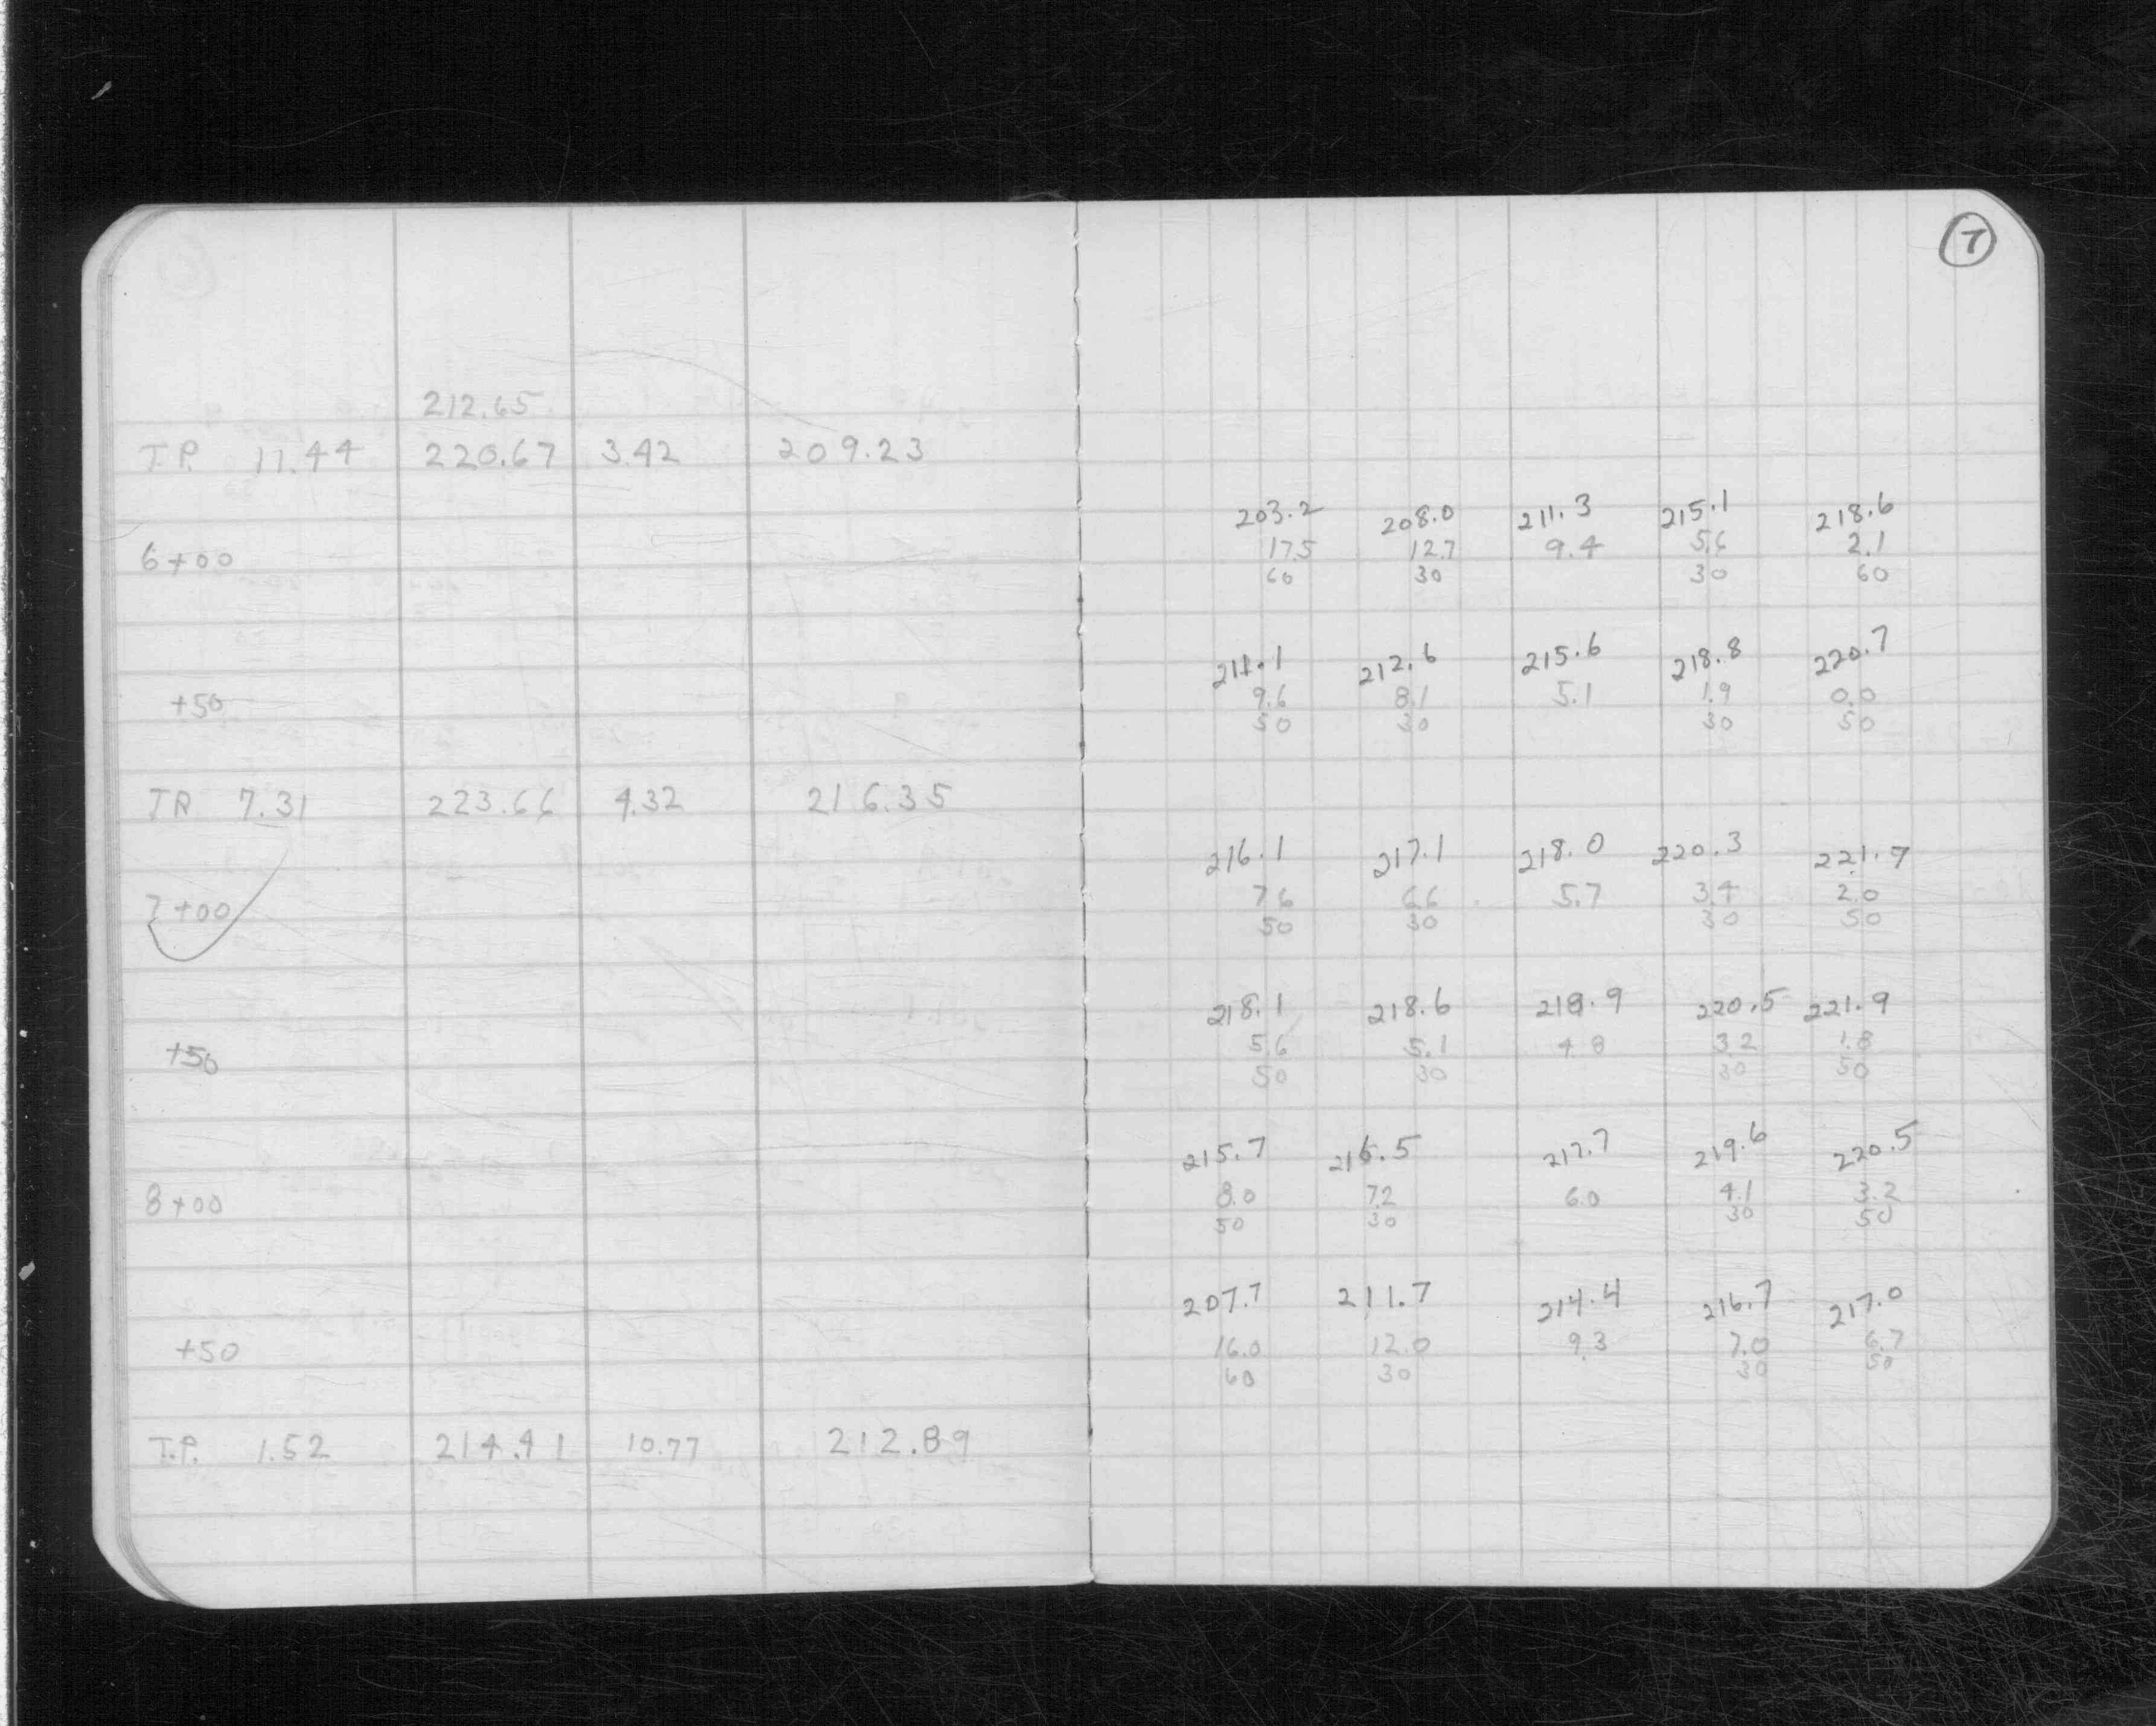 7
212.65
T.P. 11.44 220.67 3.42 209.23
203.2 208.0 211.3 215.1 218.6
6+00 17.5 12.7 9.4 5.6 2.1
60 30 30 60
211.1 212.6 215.6 218.8 220.7
+50 9.6 8.1 5.1 1.9 0.0
50 30 30 50
T.P. 7.31 223.66 4.32 216.35
216.1 217.1 218.0 220.3 221.7
7+00 7.6 6.6 5.7 3.4 2.0
50 30 30 50
218.1 218.6 218.9 220.5 221.9
+50 5.6 5.1 4.8 3.2 1.8
50 30 30 50
215.7 216.5 217.7 219.6 220.5
8+00 8.0 7.2 6.0 4.1 3.2
50 30 30 50
207.7 211.7 214.4 216.7 217.0
+50 16.0 12.0 9.3 7.0 6.7
60 30 30 50
T.P. 1.52 214.41 10.77 212.89